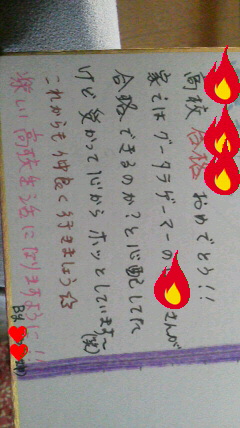 高校 合格 おめでとう!!
家ではグータラゲーマーの さんが
合格できるのか?と心配してた
けど受かって心からホッとしています〜(笑)
これからも仲良く きましょう☆
楽しい高校生活になりますように!!
By